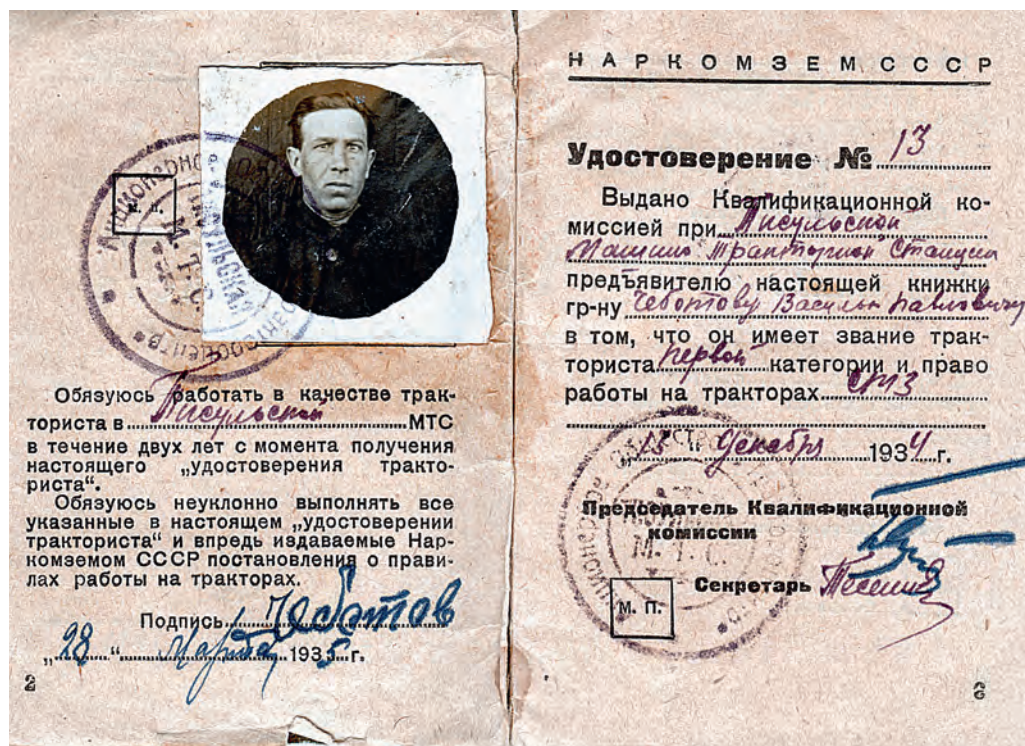 Обязуюсь работать в качестве трак-
ториста в Писульской МТС
в течение двух лет с момента получения
настоящего „удостоверения тракто-
риста“.
Обязуюсь неуклонно выполнять все
указанные в настоящем „удостоверении
тракториста“ и впредь издаваемые Нар-
комземом СССР постановления о прави-
лах работы на тракторах.
Подпись Чеботов
„28“ Марта 1935 г.
2
НАРКОМЗЕМ СССР
Удостоверение № 13
Выдано Квалификационной ко-
миссией при Писульской
Машино Тракторной Станции
предъявителю настоящей книжки
гр-ну Чеботову Василью Павловичу
в том, что он имеет звание трак-
ториста первой категории и право
работы на тракторах СТЗ
„15“ Декабря 1934 г.
Председатель Квалификационной
комиссии
Секретарь
М. П.
М. Т. С.